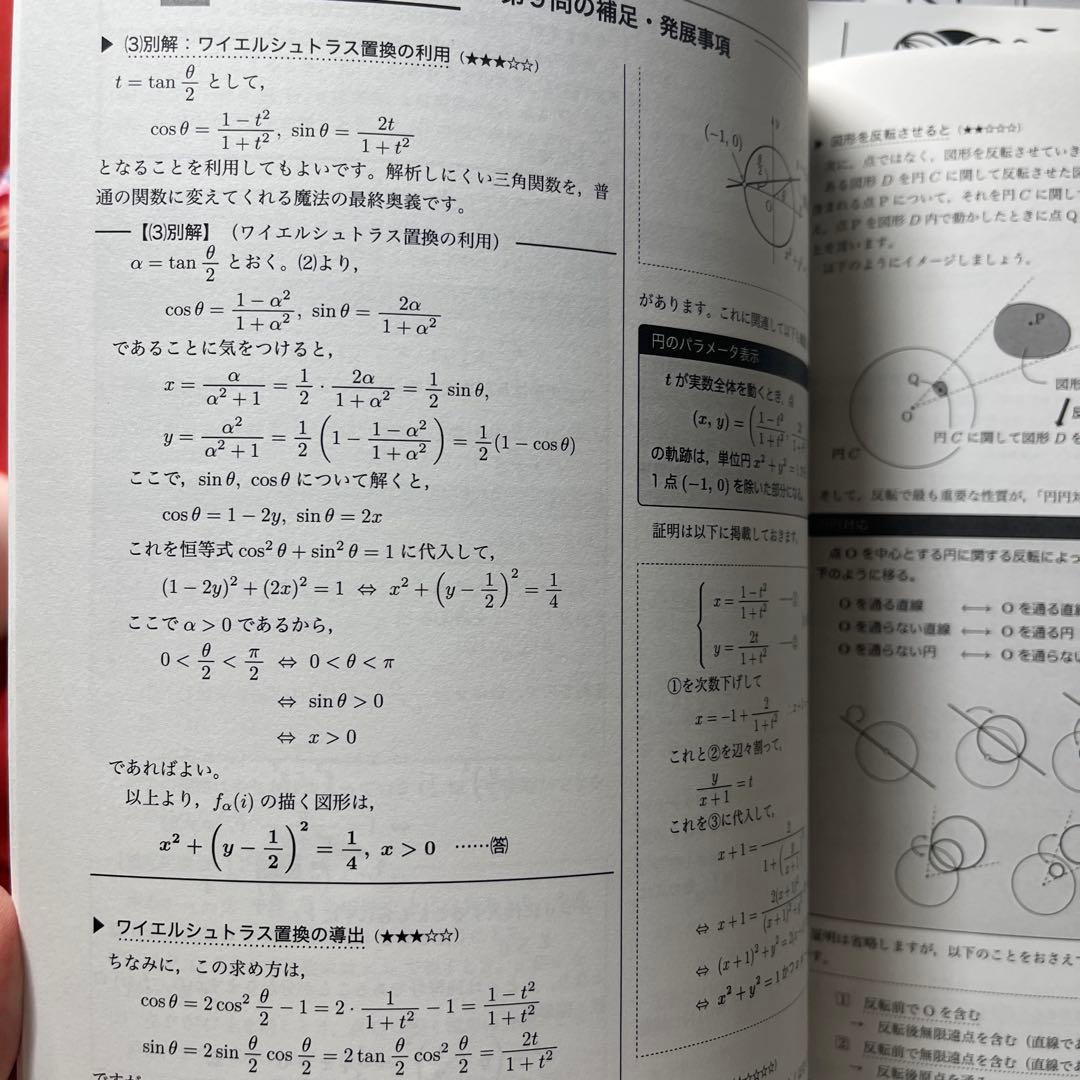 第9問の補足・発展事項
▶ (3)別解：ワイエルシュトラス置換の利用 (★★★☆☆)
t = tan θ/2 として，
cosθ = (1−t²)/(1+t²), sinθ = 2t/(1+t²)
となることを利用してもよいです。解析しにくい三角関数を，普
通の関数に変えてくれる魔法の最終奥義です。
【(3)別解】（ワイエルシュトラス置換の利用）
α = tan θ/2 とおく。(2)より，
cosθ = (1−α²)/(1+α²), sinθ = 2α/(1+α²)
であることに気をつけると，
x = α/(α²+1) = 1/2 · 2α/(1+α²) = 1/2 sinθ,
y = α²/(α²+1) = 1/2 (1 − (1−α²)/(1+α²)) = 1/2 (1 − cosθ)
ここで，sinθ, cosθ について解くと，
cosθ = 1 − 2y, sinθ = 2x
これを恒等式 cos²θ + sin²θ = 1 に代入して，
(1 − 2y)² + (2x)² = 1 ⇔ x² + (y − 1/2)² = 1/4
ここで α > 0 であるから，
0 < θ/2 < π/2 ⇔ 0 < θ < π
⇔ sinθ > 0
⇔ x > 0
であればよい。
以上より，fα(i) の描く図形は，
x² + (y − 1/2)² = 1/4, x > 0 ……(答)
▶ ワイエルシュトラス置換の導出 (★★★☆☆)
ちなみに，この求め方は，
cosθ = 2cos² θ/2 − 1 = 2 · 1/(1+t²) − 1 = (1−t²)/(1+t²)
sinθ = 2 sin θ/2 cos θ/2 = 2 tan θ/2 cos² θ/2 = 2t/(1+t²)
ですが
(−1, 0)
y
O
があります。これに関連して以下も
円のパラメータ表示
t が実数全体を動くとき，点
(x, y) = ((1−t²)/(1+t²),
の軌跡は，単位円 x² + y² = 1
1点 (−1, 0) を除いた部分になる。
証明は以下に掲載しておきます。
x = (1−t²)/(1+t²) —①
y = 2t/(1+t²) —②
①を次数下げして
x = −1 + 2/(1+t²)
これと②を辺々割って，
y/(x+1) = t
これを③に代入して，
x + 1 =
⇔ x + 1 =
⇔ (x+1)² + y² =
⇔ x² + y² = 1 かつ
▶ 図形を反転させると (★★☆☆☆)
に，点ではなく，図形を反転させていき
ある図形 D を円 C に関して反転させた図
含まれる点 P について，それを円 C に関して
，点 P を図形 D 内で動かしたときに点 Q
を言います。
以下のようにイメージしましょう。
P
Q
O
円 C
図形
円 C に関して図形 D を
そして，反転で最も重要な性質が，「円円対
対応
点 O を中心とする円に関する反転によっ
下のように移る。
O を通る直線 ⟷ O を通る直線
O を通らない直線 ⟷ O を通る円
O を通らない円 ⟷ O を通らない
証明は省略しますが，以下のことをおさえて
す。
1 反転前で O を含む
→ 反転後無限遠点を含む（直線であ
2 反転前で無限遠点を含む（直線であ
→ 反転後原点を通